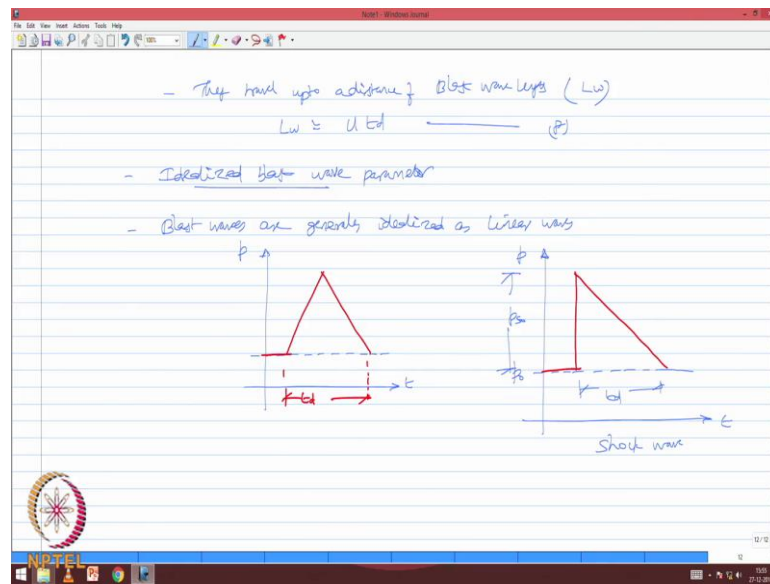 Note1 - Windows Journal
File Edit View Insert Actions Tools Help
- They travel upto a distance of Blast wave length (Lw)
Lw ≅ U td (8)
- Idealized blast wave parameter
- Blast waves are generally idealized as linear waves
p
p
ps
p0
td
t
td
t
Shock wave
NPTEL
12 / 12
12
15:55
27-12-20